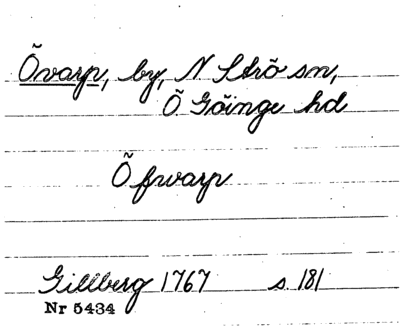 Övarp, by, N Strö sn,
Ö Göinge hd
Öfwarp
Gillberg 1767 s. 181
Nr 5434